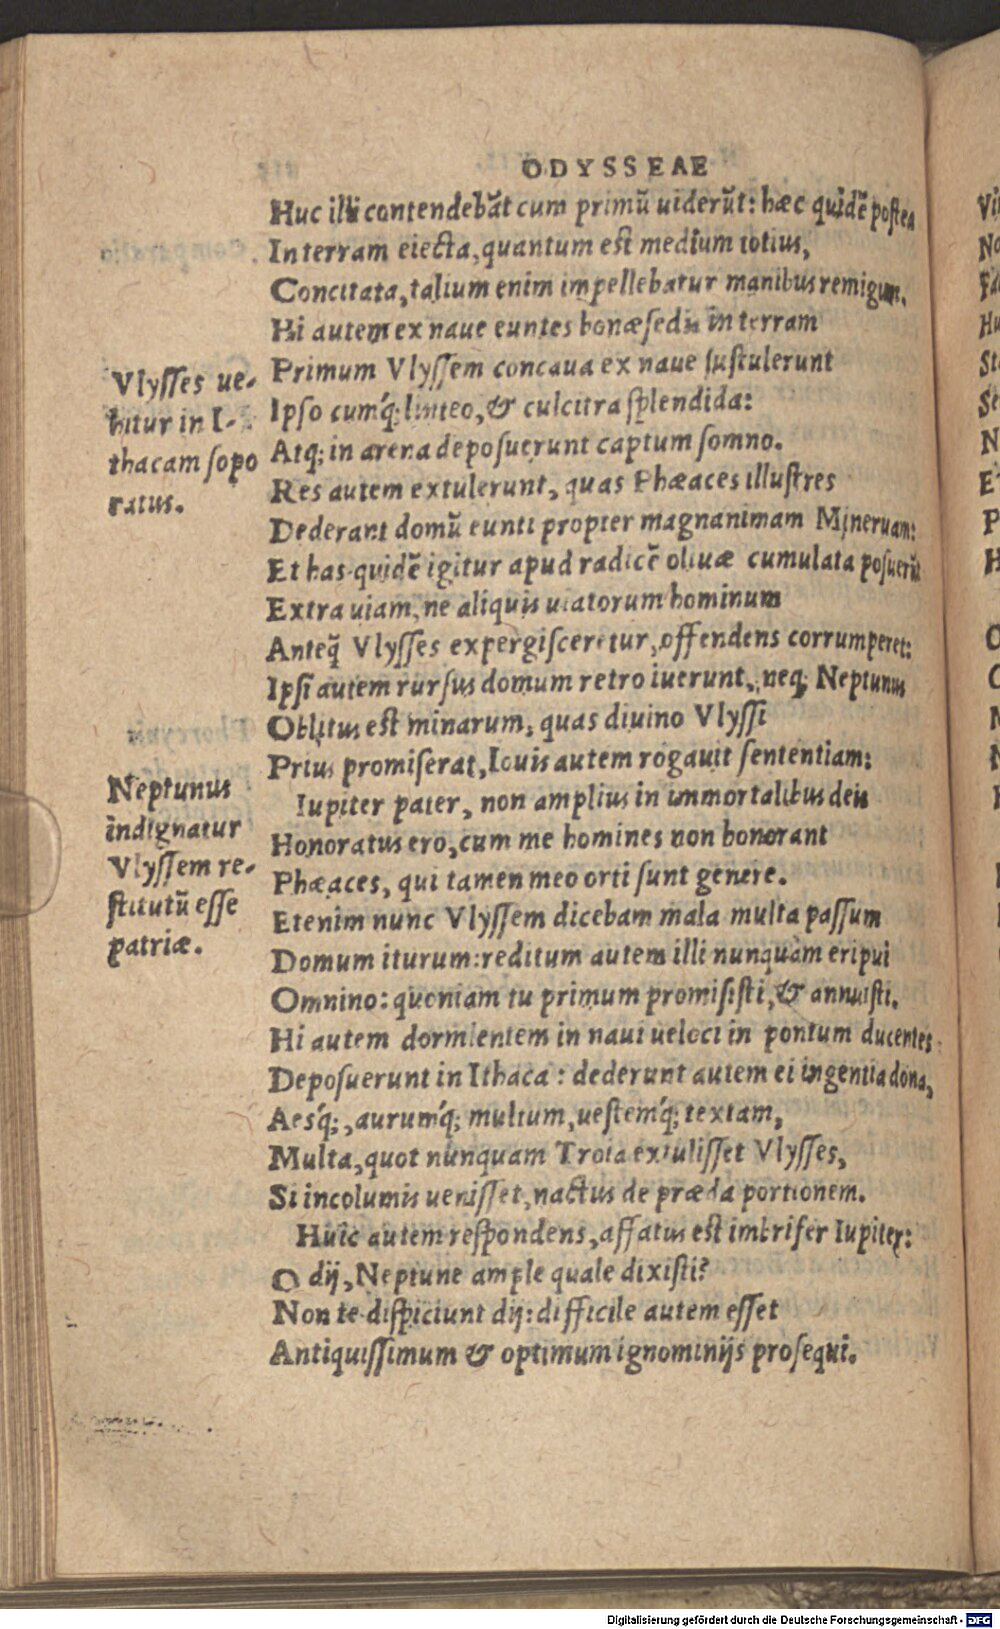 ODYSSEAE
Huc illi contendebāt cum primū uiderūt: hæc quidē postea
In terram eiecta, quantum est medium totius,
Concitata, talium enim impellebatur manibus remigum.
Hi autem ex naue euntes bonæ sedis in terram
Primum Vlyssem concaua ex naue sustulerunt
Ipso cumq́; linteo, & culcitra splendida:
Atq; in arena deposuerunt captum somno.
Res autem extulerunt, quas Phæaces illustres
Dederant domū eunti propter magnanimam Mineruam:
Et has quidē igitur apud radicē oliuæ cumulata posuerūt
Extra uiam, ne aliquis uiatorum hominum
Anteq̃ Vlysses expergisceretur, offendens corrumperet:
Ipsi autem rursus domum retro iuerunt, neq; Neptunus
Oblitus est minarum, quas diuino Vlyssi
Prius promiserat, Iouis autem rogauit sententiam:
Iupiter pater, non amplius in immortalibus deis
Honoratus ero, cum me homines non honorant
Phæaces, qui tamen meo orti sunt genere.
Etenim nunc Vlyssem dicebam mala multa passum
Domum iturum: reditum autem illi nunquam eripui
Omnino: quoniam tu primum promisisti, & annuisti.
Hi autem dormientem in naui ueloci in pontum ducentes
Deposuerunt in Ithaca: dederunt autem ei ingentia dona,
Aesq́;, aurumq́; multum, uestemq́; textam,
Multa, quot nunquam Troia extulisset Vlysses,
Si incolumis uenisset, nactus de præda portionem.
Huic autem respondens, affatus est imbrifer Iupiter:
O dij, Neptune ample quale dixisti?
Non te dispiciunt dij: difficile autem esset
Antiquissimum & optimum ignominijs prosequi.
Vlysses ue-
hitur in I-
thacam sopo
ratus.
Neptunus
indignatur
Vlyssem re-
stitutū esse
patriæ.
Digitalisierung gefördert durch die Deutsche Forschungsgemeinschaft - DFG